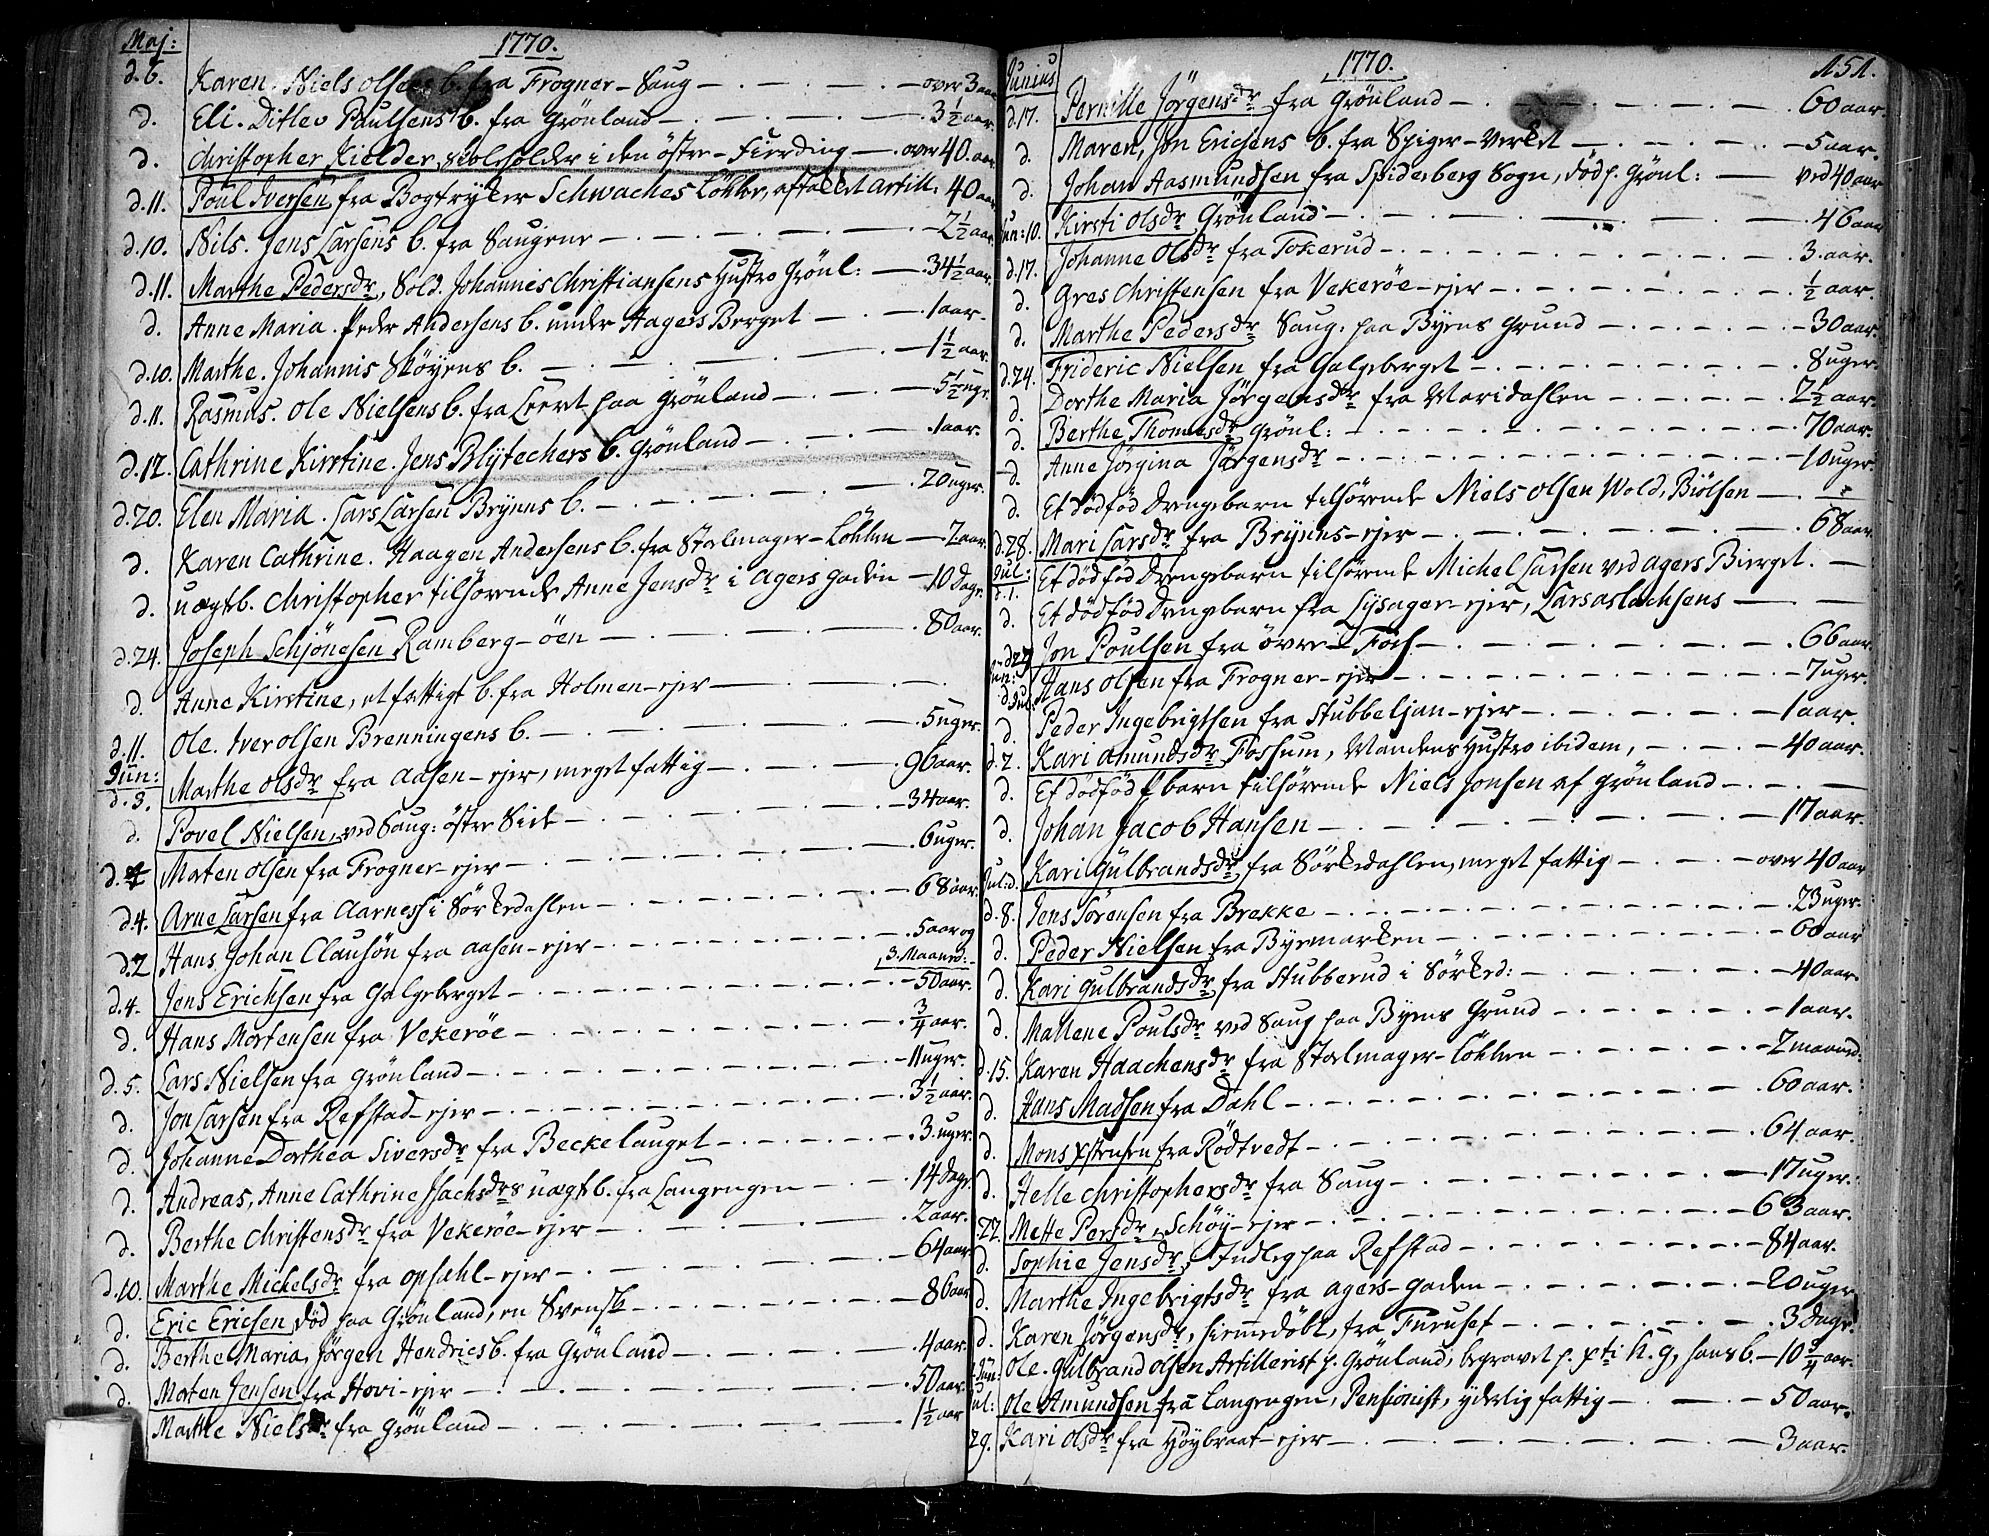 Maj: 1770.
d. 6. Karen. Niels Olsens b. fra Frogner-Saug — over 3 aar
d. Eli. Ditlev Paulsens b. fra Grönland — 3½ aar.
d. Christopher Kielder, i den östre-Fierding — over 40 aar
d. 11. Poul Iversen, fra Bogtrykker Schwaches Lökke, aftakket Artill: 40 aar
d. 10. Nils. Jens Larsens b. fra Saugene — 2½ aar.
d. 11. Marthe Pedersdr, Sold. Johannis Christiansens Hustro Grönl: — 34½ aar.
d. Anne Maria. Peder Andersens b. under Aagers Berget — 1 aar.
d. 10. Marthe. Johannis Skøyens b. — 1½ aar.
d. 11. Rasmus. Ole Nielsens b. fra Leeret paa Grönland — 5½ uger.
d. 12. Cathrine Kirstine. Jens Blÿtechers b. Grönland — 1 aar.
d. 20. Elen Maria. Lars Larsen Brÿnns b. — 20 uger.
d. Karen Cathrine. Haagen Andersens b. fra Stalmager-Lökken — 2 aar.
d. uægtb. Christopher tilhörende Anne Jensdr i Agers gaden — 10 Dage
d. 24. Joseph Schjönesen Ramberg-öen — 80 aar.
d. Anne Kirstine, et fattigt b. fra Holmen-ejer —
d. 11. Ole. Iver Olsen Brenningens b. — 5 uger.
Jun:
d. 3. Marthe Olsdr fra Aasen-ejer, meget fattig — 96 aar.
d. Povel Nielsen, ved Saug: östre Side — 34 aar.
d. 4 Morten Olsen fra Frogner-ejer — 6 uger.
d. 4. Arne Larsen fra Aarness i Sörkedahlen — 68 aar.
d. 2 Hans Johan Clausön fra Aasen-ejer — 5 aar og 3. Maaned:
d. 4. Jens Erichsen fra Galgeberget — 50 aar.
d. Hans Mortensen fra Vekeröe — ¾ aar.
d. 5. Lars Nielsen fra Grönland — 11 uger.
d. Jon Larsen fra Refstad-ejer — 3½ aar.
d. Johanne Dorthea Siversdr fra Beckelauget — 3 uger.
d. Andreas, Anne Cathrine Isachsdrs uægt b. fra Langengen — 14 dage
d. Berthe Christensdr fra Vekeröe-ejer — 2 aar.
d. 10. Marthe Michelsdr fra Opsahl-ejer — 64 aar
d. Eric Ericsen död paa Grönland, en Svensk — 86 aar
d. Berthe Maria, Jörgen Hendrics b. fra Grönland — 4 aar.
d. Morten Jensen fra Hovi-ejer — 50 aar.
Marthe Nielsdr fra Grönland — 1½ aar
Junius 1770. 151.
d. 17. Pernille Jörgensdr fra Grönland — 60 aar.
d. Maren, Jon Ericsens b. fra Spiger-Verket — 5 aar.
d. Johan Aasmundsen fra Spideberg Sogn, död p. Grönl: — ved 40 aar
Jun: 10. Kirsti Olsdr Grönland — 46 aar
d. 17. Johanne Olsdr fra Tokerud — 3. aar.
d. Gres Christensen fra Vekeröe-ejer — ½ aar.
d. Marthe Pedersdr Saug: paa Byens Grund — 30 aar.
d. 24. Frideric Nielsen fra Galgeberget — 8 uger.
d. Dorthe Maria Jörgensdr fra Maridahlen — 2½ aar.
d. Berthe Thomesdr Grönl: — 70 aar.
d. Anne Jörgina Jörgensdr — 10 uger
d. Et dödföd Drengebarn tilhörende Niels Olsen Wold, Biölsen —
d. 28. Mari Larsdr fra Brÿnns-ejer — 68 aar.
Jul: d. 1. Et dödföd Drengebarn tilhörende Michel Larsen ved Agers Bierget. —
d. Et dödföd Drengebarn fra Lysager-ejer, Lars Aslachsens —
d. 27 Jon Poulsen fra övre-Foss — 66 aar.
Hans Olsen fra Frogner-ejer — 7 uger.
d. Peder Ingebrigtsen fra Stubbeljan-ejer — 1 aar.
d. 2. Kari Amundsdr Fossum, Mandens Hustro ibidem, — 40 aar.
d. Et dödföd barn tilhörende Niels Jonsen af Grönland —
d. Johan Jacob Hansen — 17 aar.
Jul: d. Kari Gulbrandsdr, fra Sörkedahlen, meget fattig — over 40 aar
d. 8. Jens Sörensen fra Brekke — 23 uger.
d. Peder Nielsen fra Byemarken — 60 aar
d. Kari Gulbrandsdr, fra Stubberud i Sörked: — 40 aar.
d. Mallene Poulsdr ved Saug paa Byens Grund — 1 aar.
d. 15. Karen Haachensdr fra Stalmager-Lökken — 2 maaned:
d. Hans Madsen fra Dahl — 60 aar.
d. Mons Xstensen fra Rödtvedt — 64 aar.
d. Helle Christophersdr fra Saug — 17 uger.
22. Mette Persdr, Schöy-ejer — 63 aar.
d. Sophie Jensdr, Indleg paa Refstad — 84 aar.
d. Marthe Ingebrigtsdr fra Agers-Gaden — 20 uger
d. Karen Jörgensdr, hiemmedöbt, fra Furuset — 3 dage.
Jun: Ole. Gulbrand Olsen Artillerist p. Grönland, begravet p. Xti K. g, hans b. — 10¾ aar.
Jul: Ole Amundsen fra Langengen, Pensionist, yderlig fattig — 50 aar.
29. Kari Olsdr fra Höybraat-ejer — 3 aar.